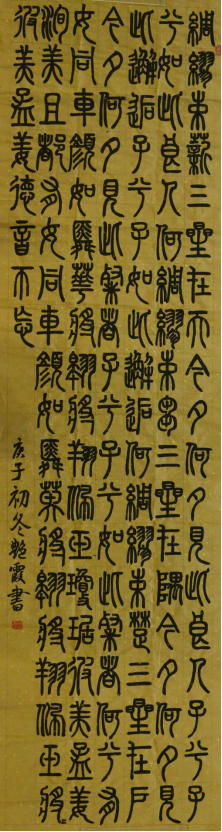 綢繆束薪三星在天今夕何夕見此良人子兮子
兮如此良人何綢繆束芻三星在隅今夕何夕見
此邂逅子兮子如此邂逅何綢繆束楚三星在戶
今夕何夕見此粲者子兮子兮如此粲者何兮有
女同車顏如舜華將翱將翔佩玉瓊琚彼美孟姜
洵美且都有女同車顏如舜英將翱將翔佩玉將
彼美孟姜德音不忘
庚子初冬艷霞書